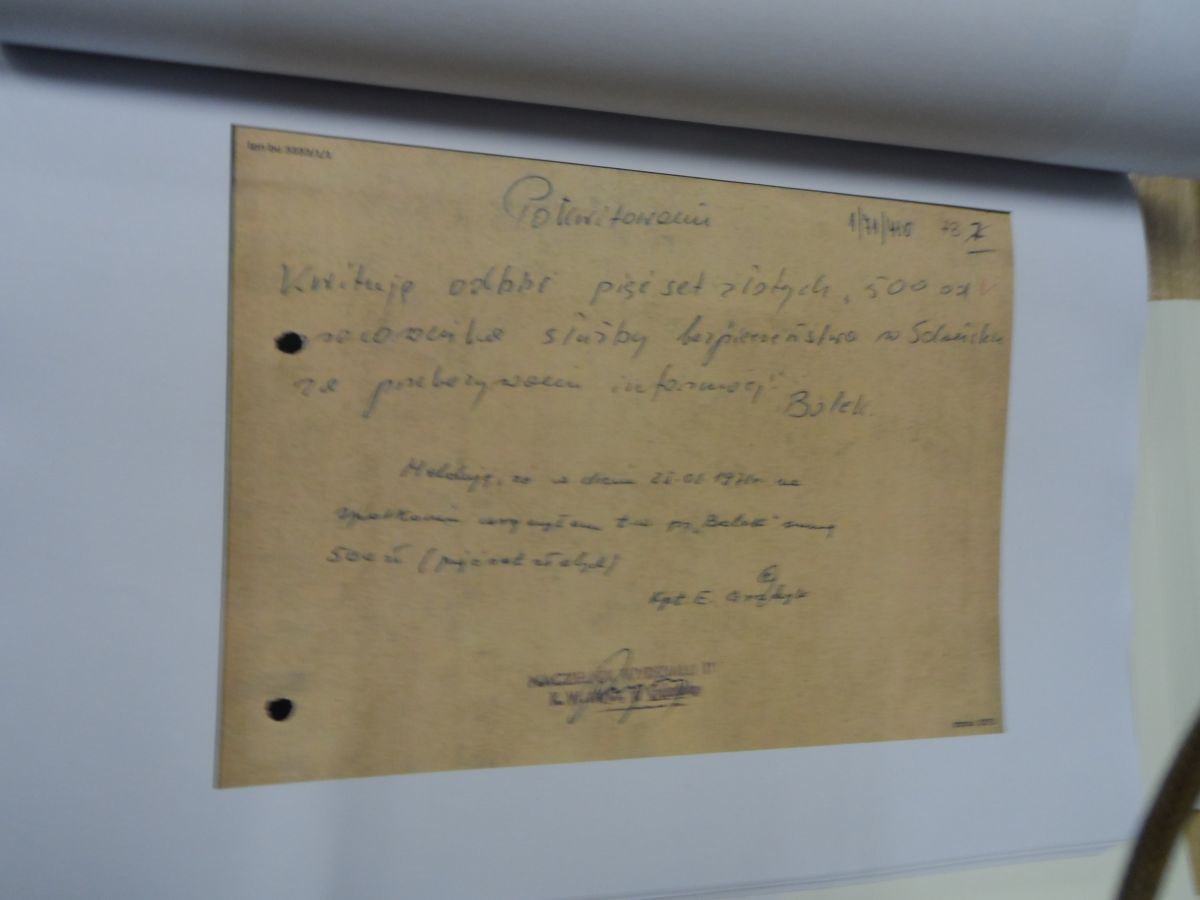 Pokwitowanie
1/71/410 73
Kwituję odbiór pięćset złotych, 500 od
pracownika służby bezpieczeństwa w Gdańsku
za przekazywanie informacji
Bolek.
Melduję, że w dniu 1971r. na
spotkaniu wręczyłem tw ps. "Bolek" sumę
500 zł (pięćset złotych)
Kpt. E. Graczyk
NACZELNIK WYDZIAŁU III